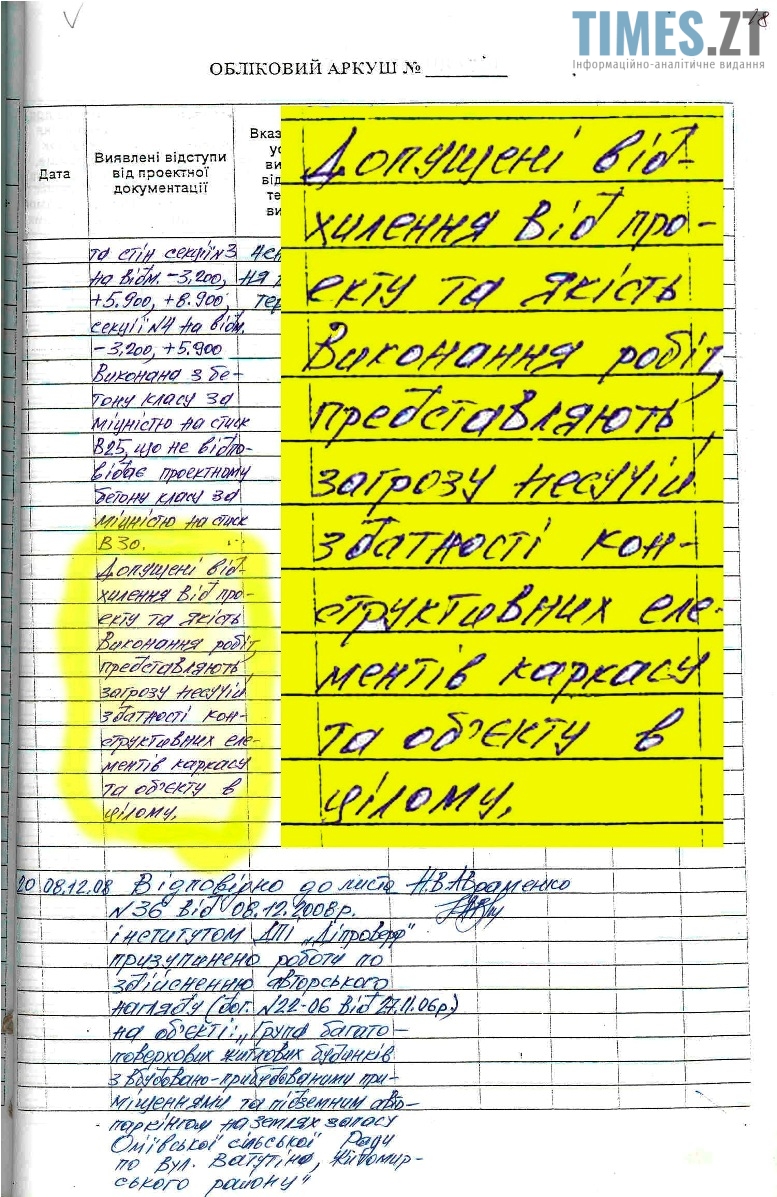 18
TIMES.ZT
Інформаційно-аналітичне видання
ОБЛІКОВИЙ АРКУШ №
Дата
Виявлені відступи
від проектної
документації
Вказ
ус
ви
від
те
ви
та стін секції №3
на відм. -3,200,
+5.900, +8.900,
секції №4 на відм.
-3,200, +5.900
Виконана з бе-
тону класу за
міцністю на стиск
В25, що не відпо-
відає проектному
бетону класу за
міцністю на стиск
В30.
Допущені від-
хилення від про-
екту та якість
Виконання робіт,
представляють
загрозу несучій
здатності кон-
структивних еле-
ментів каркасу
та об'єкту в
цілому.
ня
тер
Допущені від-
хилення від про-
екту та якість
Виконання робіт,
представляють
загрозу несучій
здатності кон-
структивних еле-
ментів каркасу
та об'єкту в
цілому.
20 08.12.08 Відповідно до листа Н.В. Авраменко
№36 від 08.12.2008р.
інститутом ДПІ „Діпроверф"
призупинено роботу по
здійсненню авторського
нагляду (дог. №22-06 від 27.11.06р.)
на об'єкті: „Група багато-
поверхових житлових будинків
з вбудовано-прибудованими при-
міщеннями та підземним авто-
паркінгом на землях запасу
Оліївської сільської Ради
по вул. Ватутіна, Житомир-
ського району"